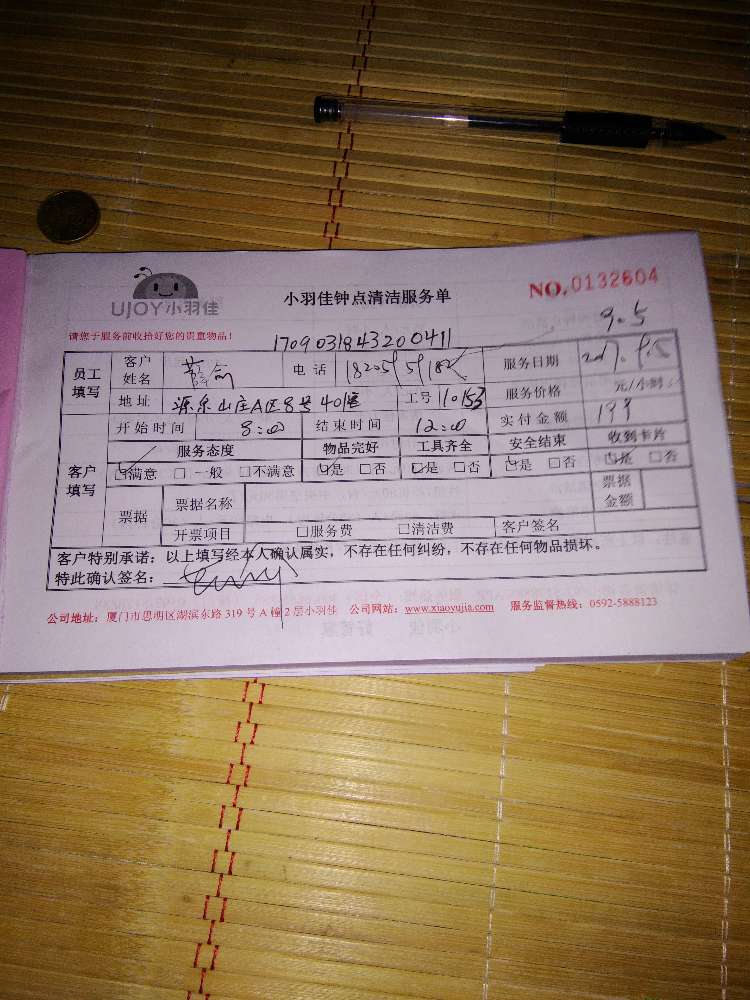 UJOY小羽佳
小羽佳钟点清洁服务单
NO.0132604
请您于服务前收拾好您的贵重物品！
1709031843200411
9.5
员工填写 客户姓名 电话 服务日期 2017.9.5
地址 源泉山庄A区8号401 工号 110153 服务价格 元/小时
开始时间 8:00 结束时间 12:00 实付金额 199
客户填写 服务态度 物品完好 工具齐全 安全结束 收到卡片
☑满意 □一般 □不满意 ☑是 □否 ☑是 □否 ☑是 □否 ☑是 □否
票据 票据名称 票据金额
开票项目 □服务费 □清洁费 客户签名
客户特别承诺：以上填写经本人确认属实，不存在任何纠纷，不存在任何物品损坏。
特此确认签名：
公司地址：厦门市思明区湖滨东路 319 号 A 幢 2 层小羽佳 公司网站：www.xiaoyujia.com 服务监督热线：0592-5888123